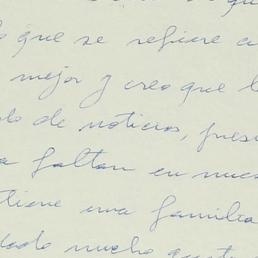 que se refiere a
mejor y creo que l
de noticias, pues
faltan en nues
tiene una familia
dado mucho gusto